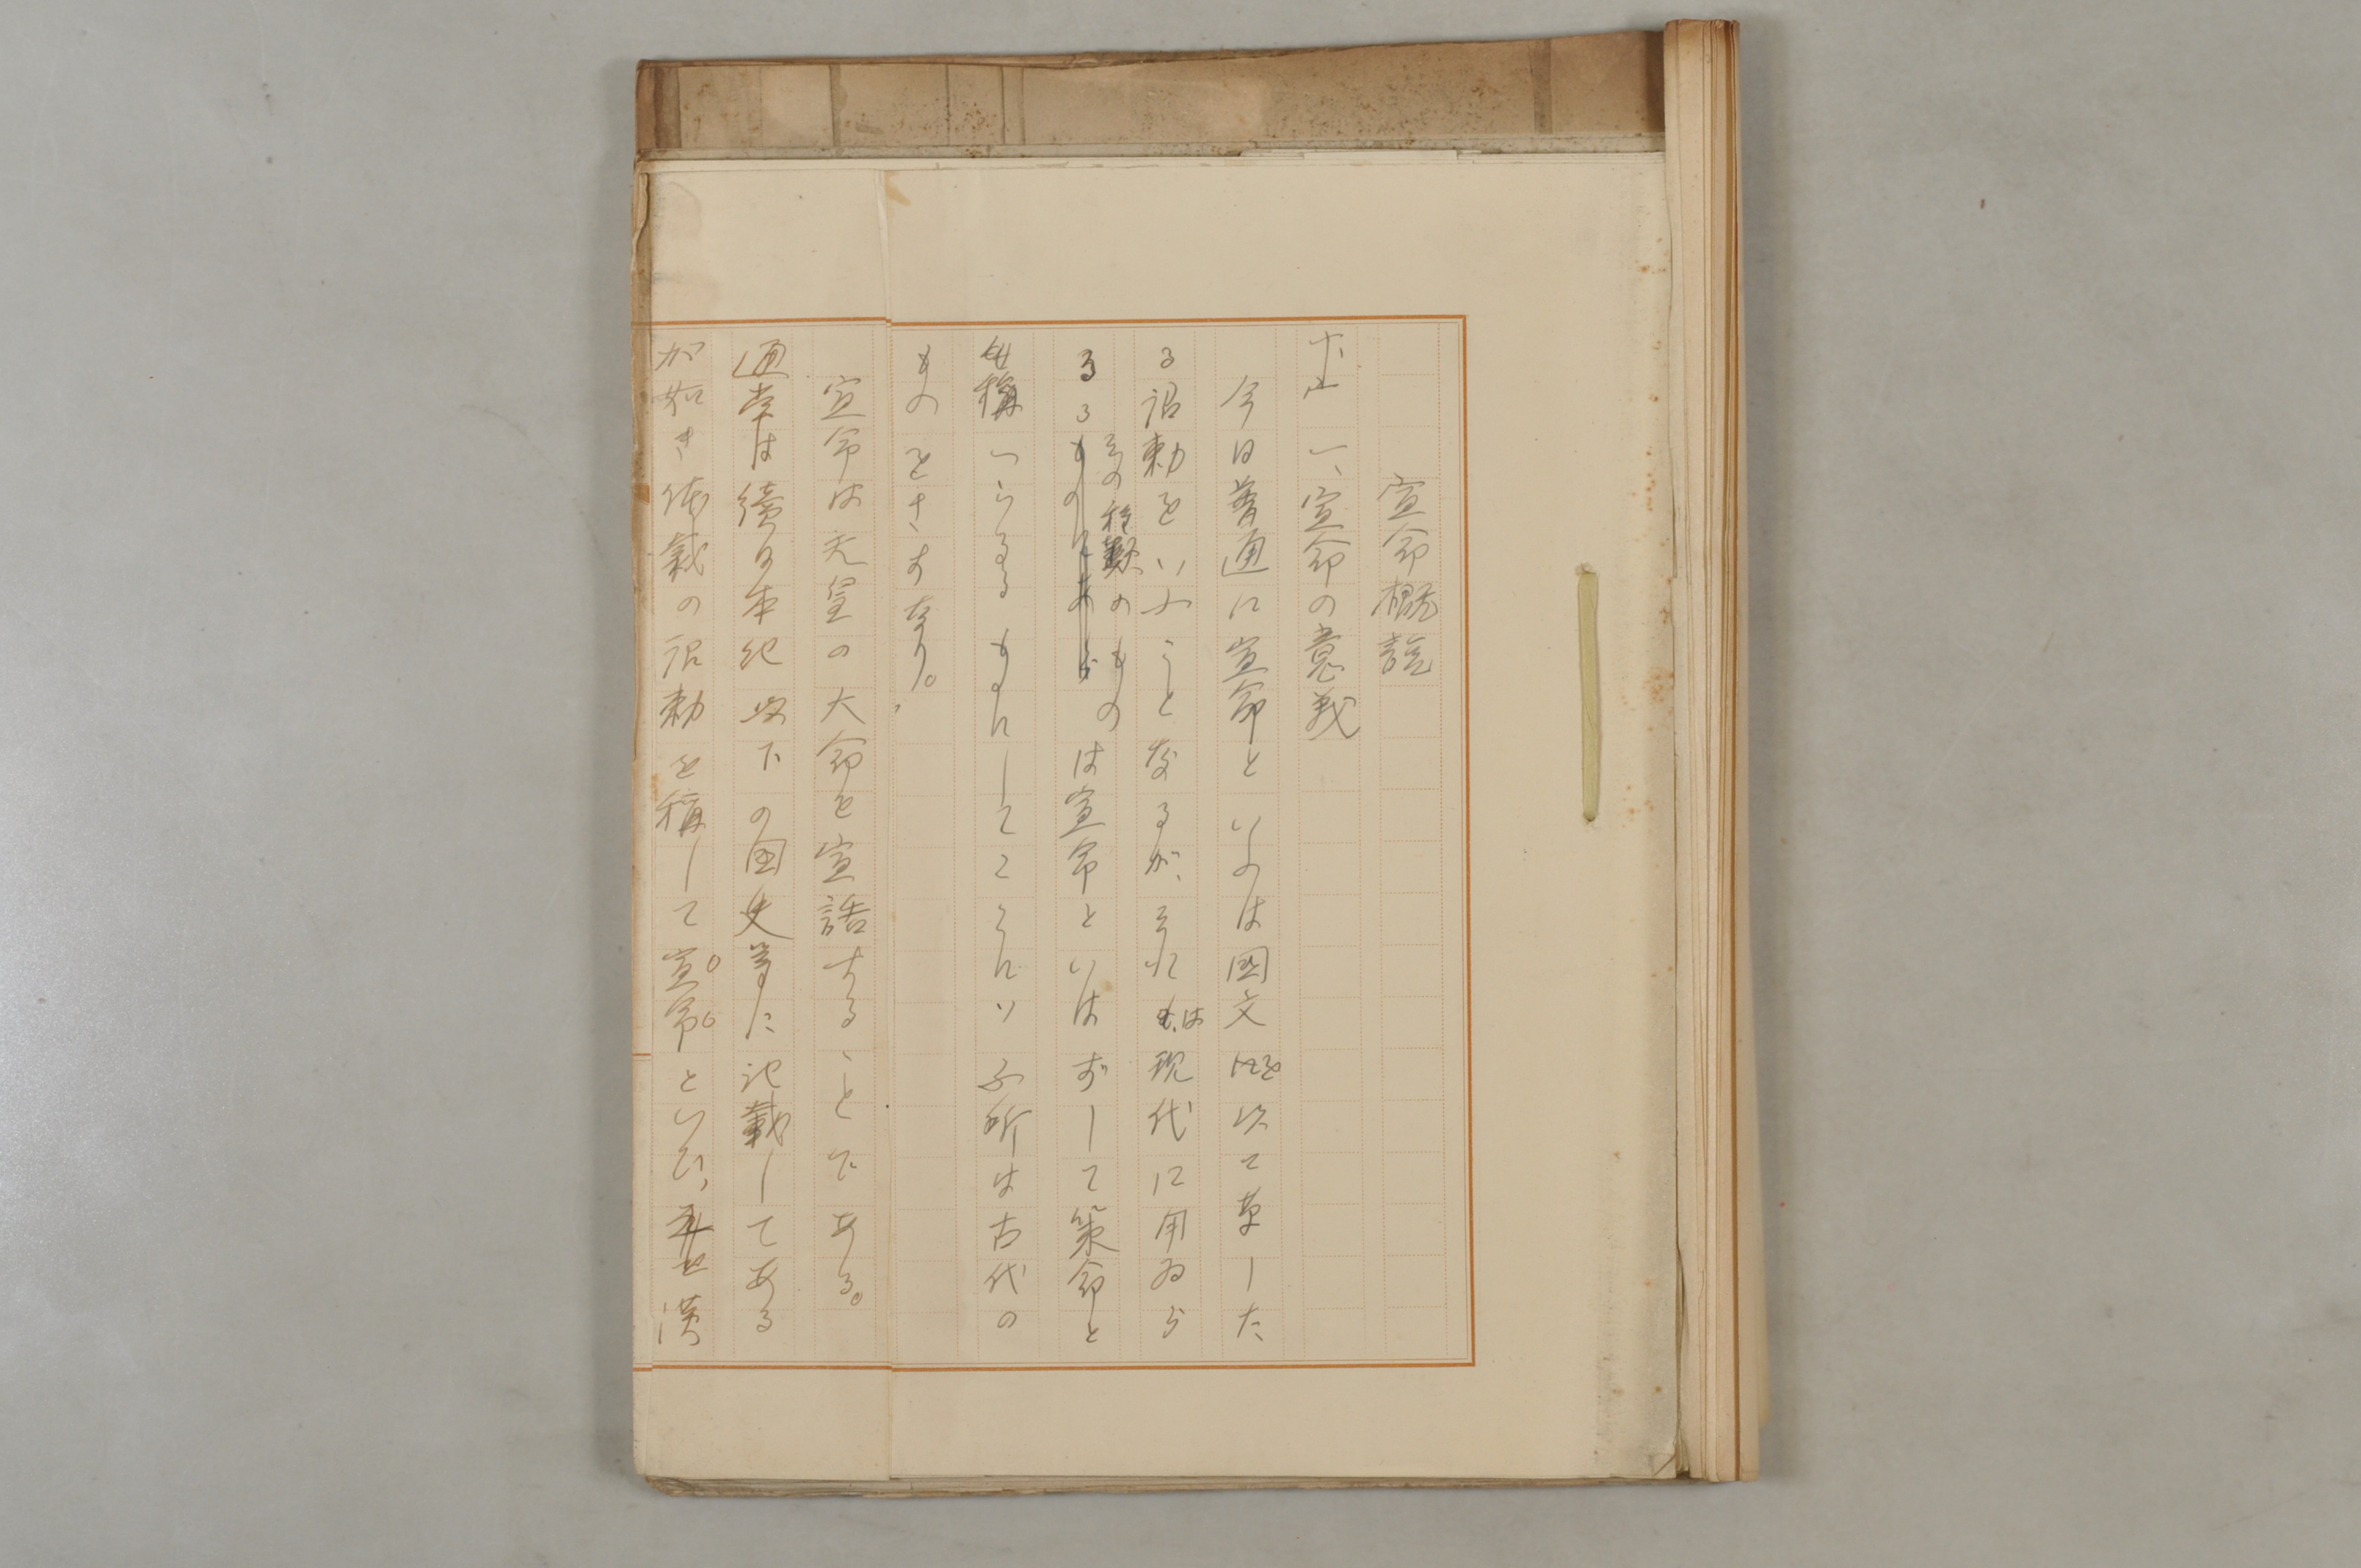 宣命概説
一、宣命の意義
今日普通に宣命といふは国文を以て草した
る詔勅をいふことなるが、それは現代に用ゐら
るるその種類のものは宣命といはずして策命と
称へらるるものにしてここにいふ所は古代の
ものをさすなり。
宣命は天皇の大命を宣誥することである。
通常は続日本紀以下の国史等に記載してある
が如き体裁の詔勅を称して宣命といひ、漢